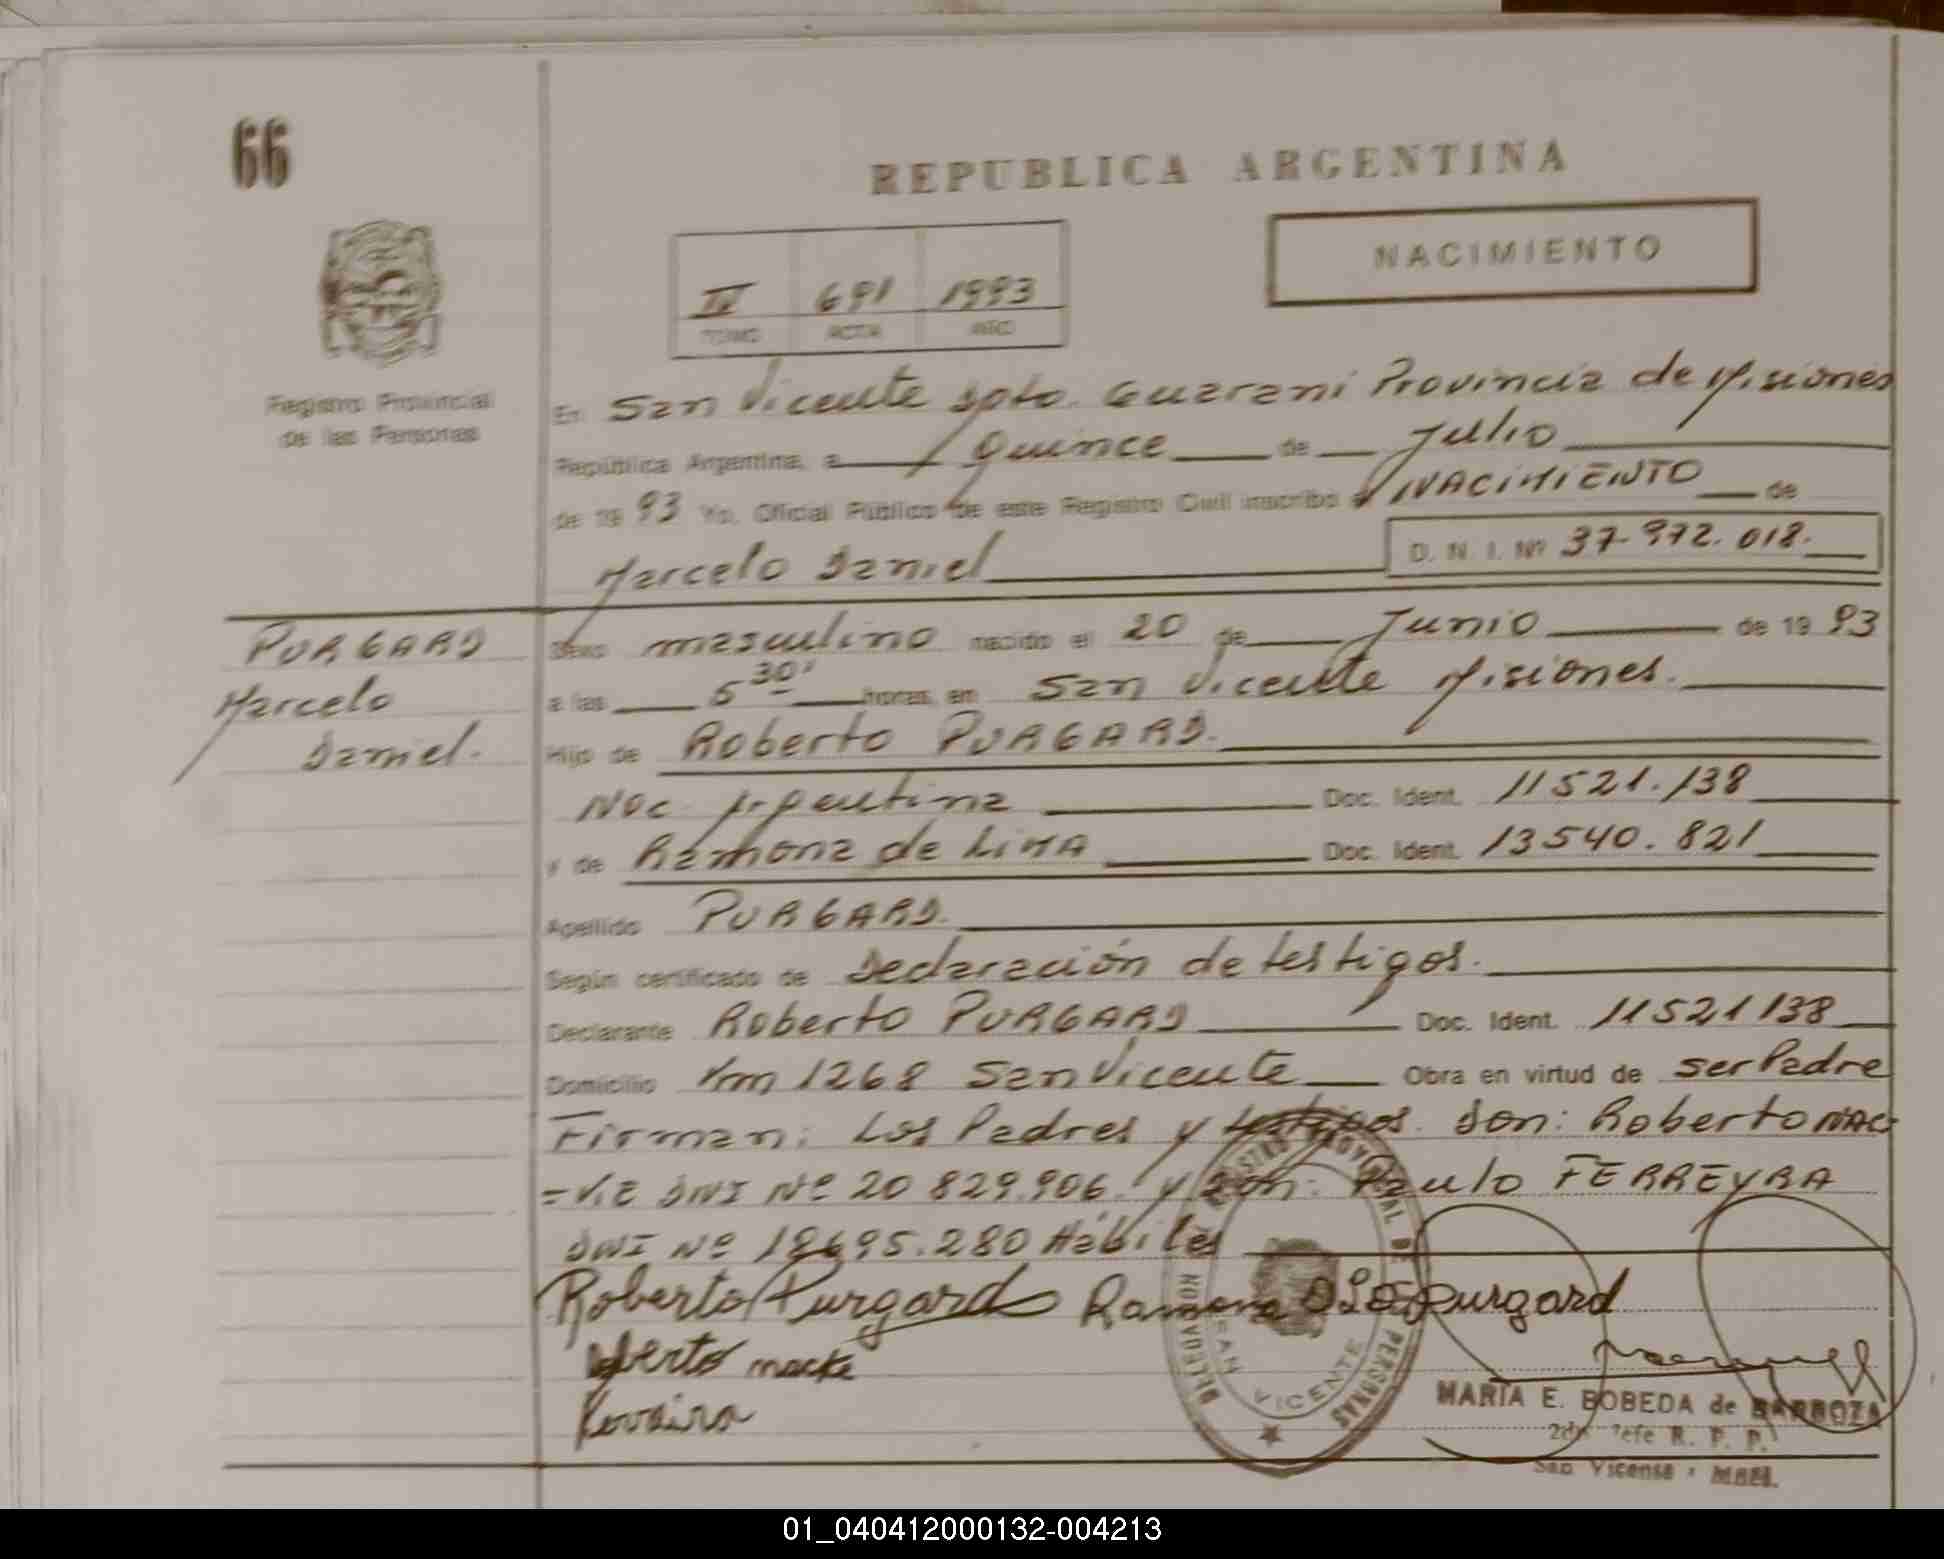 66
REPUBLICA ARGENTINA
NACIMIENTO
IV 691 1993
TOMO ACTA AÑO
Registro Provincial
de las Personas
En San Vicente Dpto. Guarani Provincia de Misiones
República Argentina, a Quince de Julio
de 1993 Yo, Oficial Público de este Registro Civil inscribo el NACIMIENTO de
Marcelo Daniel D. N. I. Nº 37.972.018.
PURGARD
Marcelo
Daniel.
Sexo masculino nacido el 20 de Junio de 1993
a las 5 30' horas, en San Vicente Misiones.
Hijo de Roberto PURGARD.
Nac. Argentina Doc. Ident. 11521.138
y de Ramona de LIMA Doc. Ident. 13540.821
Apellido PURGARD.
Según certificado de Declaración de testigos.
Declarante Roberto PURGARD Doc. Ident. 11521138
Domicilio Km 1268 San Vicente Obra en virtud de ser Padre
Firman: Los Padres y testigos. Don: Roberto MAC
=KE DNI Nº 20 829.906. y Don: Paulo FERREYRA
DNI Nº 18695.280 Hábiles
Roberto Purgard Ramona D L de Purgard
Roberto macke
DELEGACION REGISTRO PROVINCIAL DE LAS PERSONAS
SAN VICENTE
MARIA E. BOBEDA de BARBOZA
2do Jefe R. P. P.
San Vicente
01_040412000132-004213